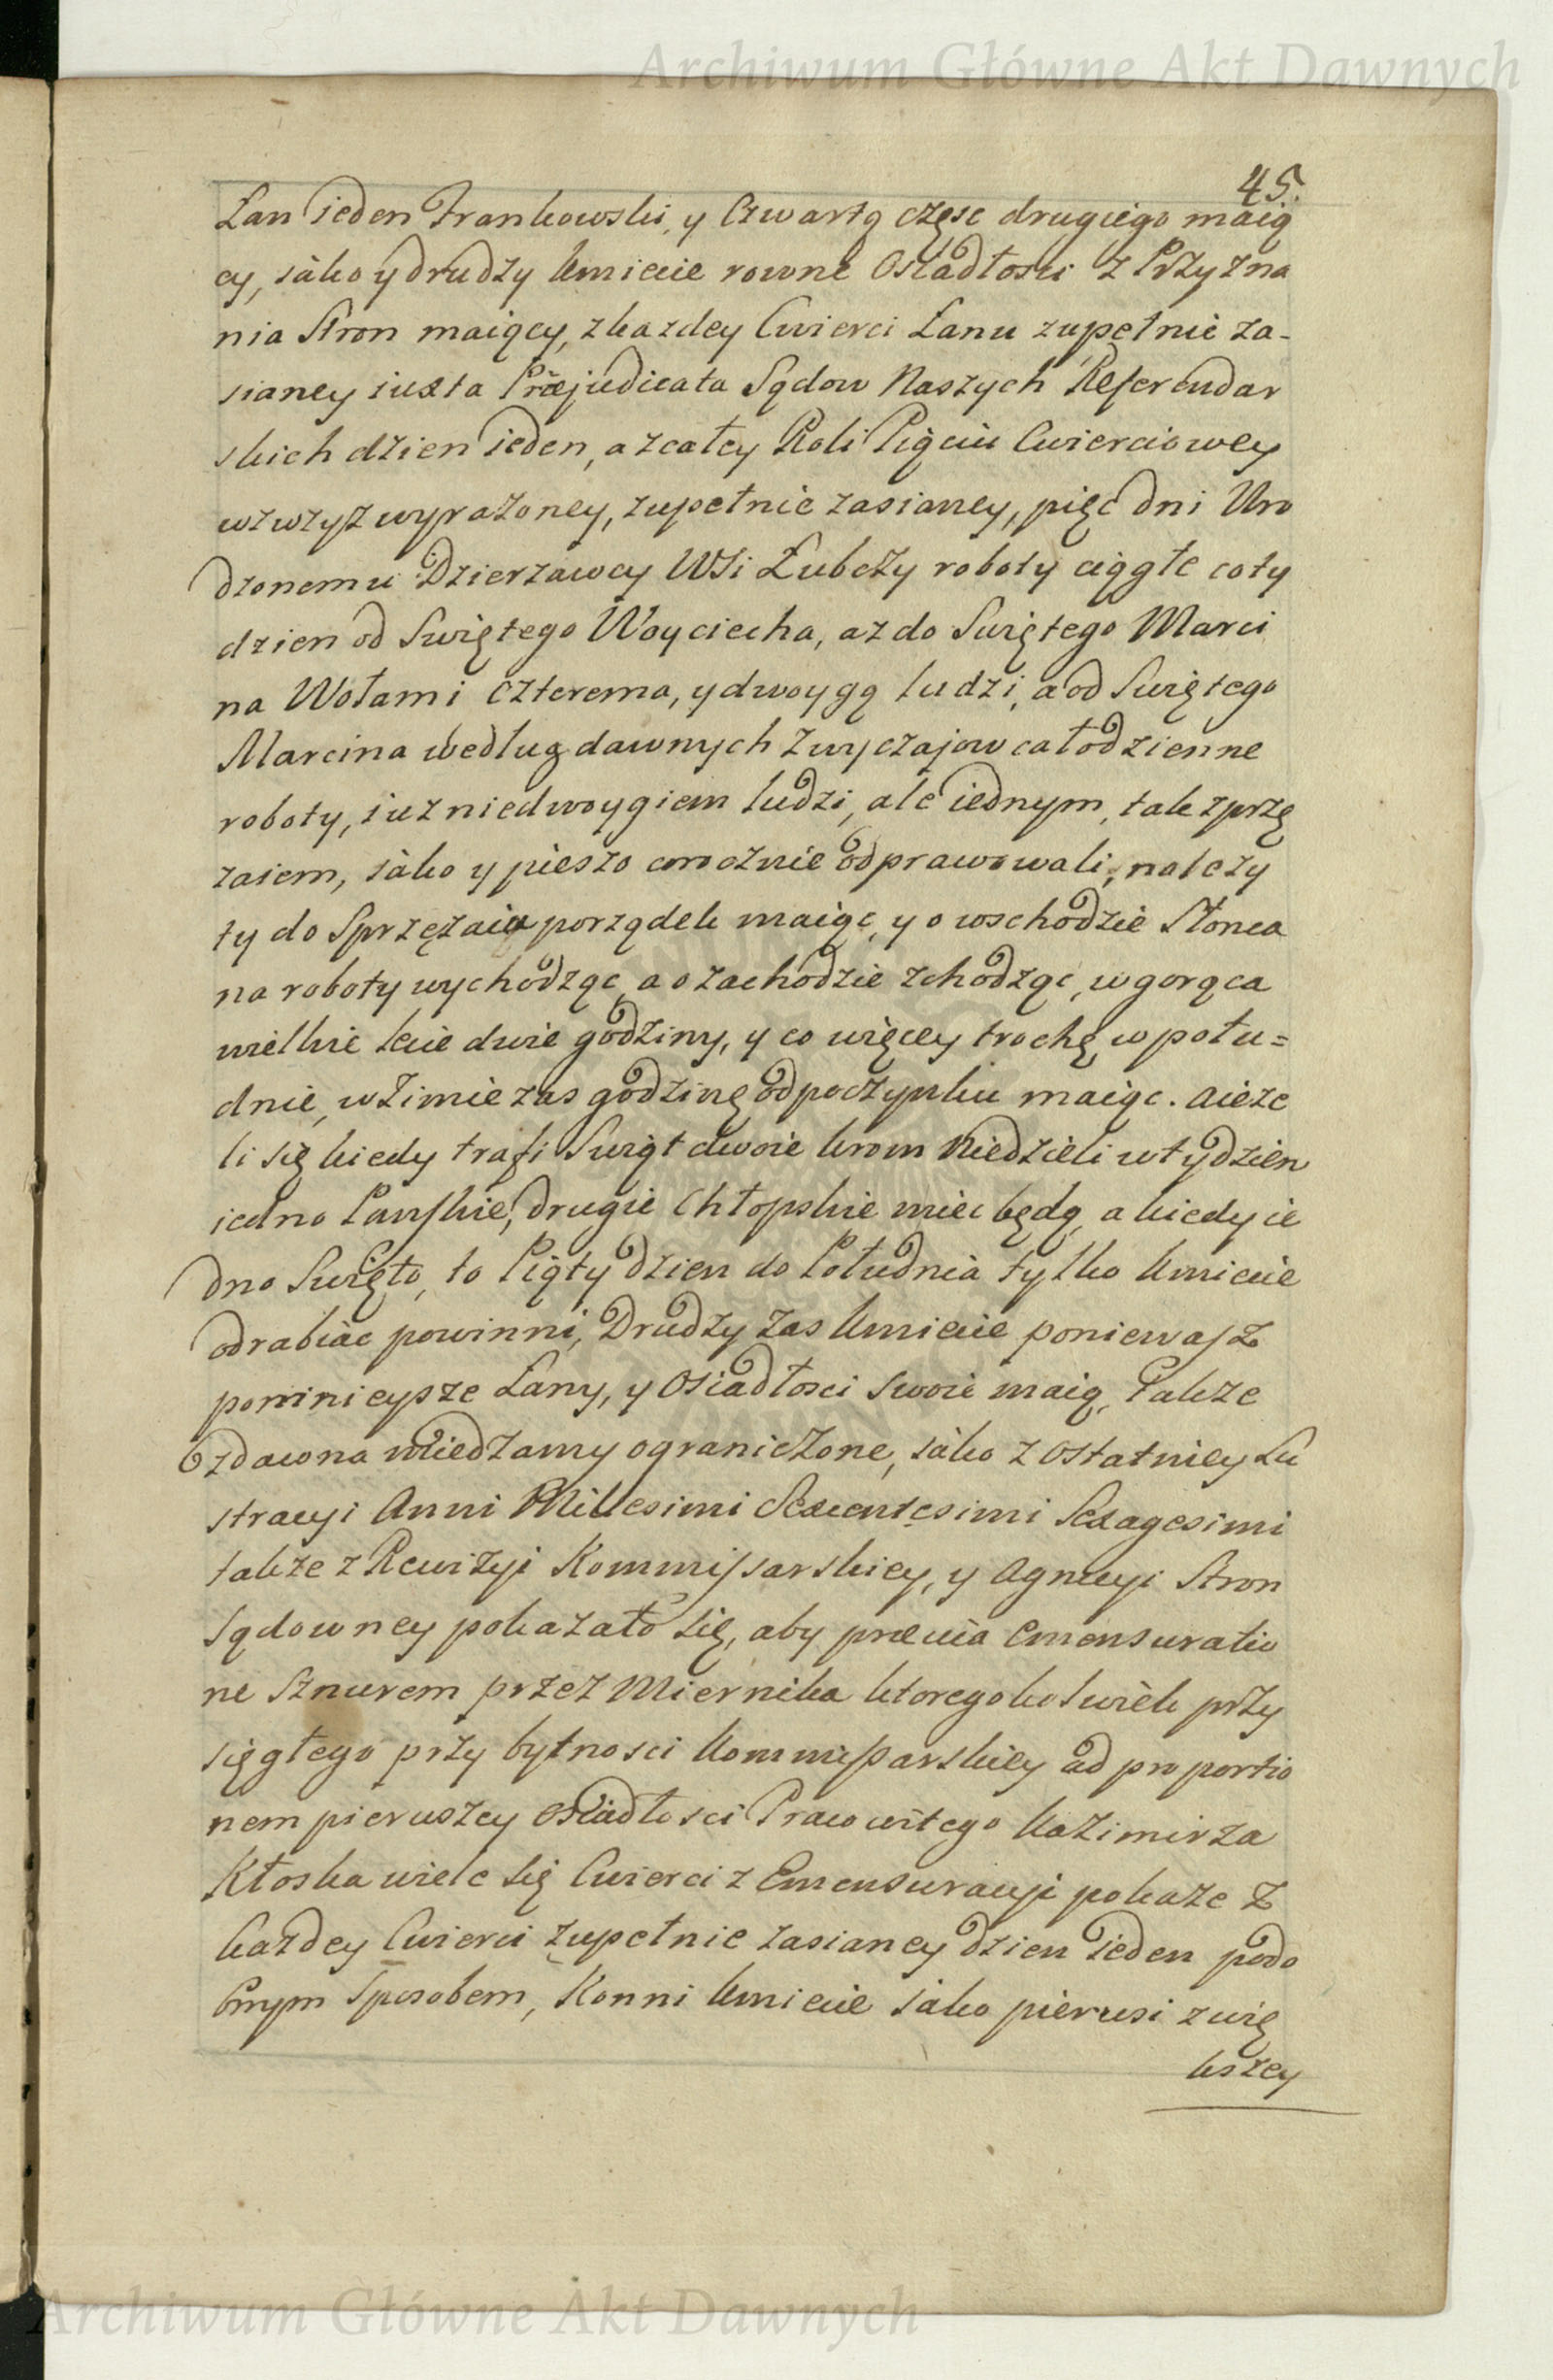 Archiwum Główne Akt Dawnych
45.
Łan ieden Frankowski, y Czwartą częsc drugiego maią
cy, iako y drudzy kmiecie rowne Osiadłosci z Przyzna
nia Stron maiący, z kazdey Cwierci Łanu zupełnie za-
sianey iuxta Præjudicata Sądow Naszych Referendar
skich dzien ieden, a z całey Roli Pięciu Cwierciowey
wzwysz wyrazoney, zupełnie zasianey, pięc dni Uro
dzonemu Dzierzawcy WSi Łubczy roboty ciągłe coty
dzien od Swiętego Woyciecha, az do Swiętego Marci
na Wołami czterema, y dwoygą ludzi, a od Swiętego
Marcina według dawnych zwyczajow całodzienne
roboty, iuz niedwoygiem ludzi, ale iednym, tak zprzę
zaiem, iako y pieszo corocznie odprawowali, nalezy
ty do Sprzęzaiu porządek maiąc, y o wschodzie Słonca
na roboty wychodząc, a o zachodzie zchodząc, w gorąca
wielkie lecie dwie godziny, y co więcey trochę w połu=
dnie, w Zimie zas godzinę odpoczynku maiąc. aieze
li się kiedy trafi Swiąt dwoie krom Niedzieli w tydzien
iedno Panskie, drugie Chłopskie miec będą, a kiedy ie
dno Swięto, to Piąty dzien do Południa tylko kmiecie
odrabiac powinni, Drudzy zas kmiecie poniewasz
pomnieysze Łany, y Osiadłosci swoie maią, Takze
zdawna miedzamy ograniczone, iako z ostatniey Lu
stracyi Anni Millesimi Sexcentesimi Sexagesimi
takze z Rewizyi Kommissarskiey, y Agnicyi Stron
Sądowney pokazało się, aby prævia emensuratio
ne Sznurem przez Miernika ktoregokolwiek przy
sięgłego przy bytnosci kommissarskiey ad proportio
nem pierwszey osiadłosci Pracowitego Kazimirza
Kłoska wiele się Cwierci z Emensuracyi pokaze z
kazdey Cwierci zupełnie zasianey dzien ieden podo
bnym Sposobem, Konni kmiecie iako pierwsi z wię
kszey
Archiwum Główne Akt Dawnych